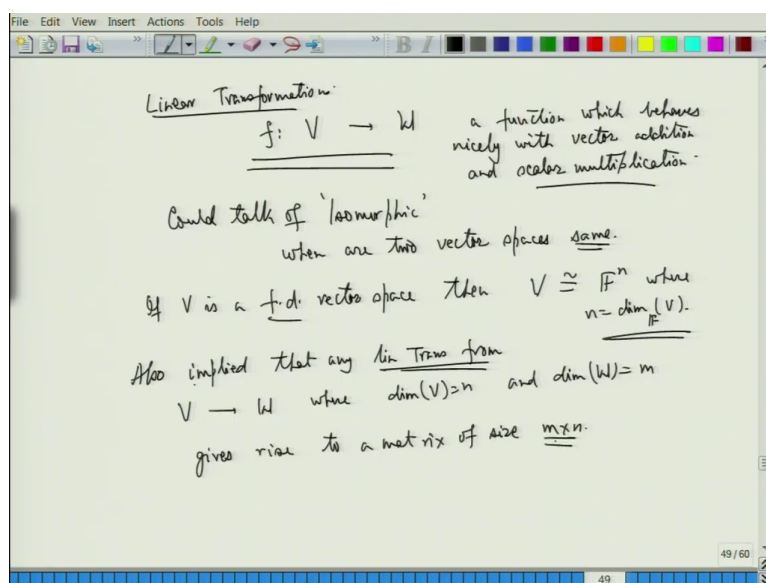 File Edit View Insert Actions Tools Help
Linear Transformation.
f: V → W
a function which behaves
nicely with vector addition
and scalar multiplication.
Could talk of 'Isomorphic'
when are two vector spaces same.
If V is a f.d. vector space then V ≅ 𝔽ⁿ where
n = dim_𝔽 (V).
Also implied that any lin Trans from
V → W where dim(V)=n and dim(W)=m
gives rise to a matrix of size m×n.
49 / 60
49